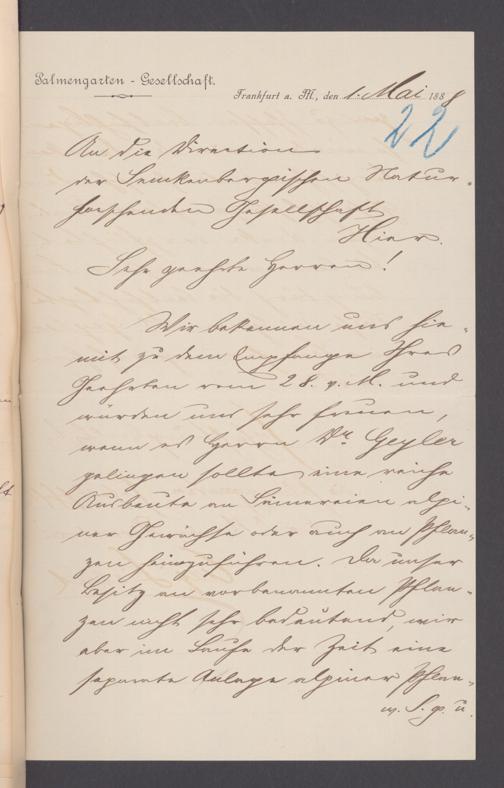 Palmengarten - Gesellschaft.
Frankfurt a. M., den 1. Mai 1888
22
An die Direction
der Senckenbergischen Natur-
forschenden Gesellschaft
Hier.
Sehr geehrte Herren!
Wir bekennen uns hie-
mit zu dem Empfange Ihres
Geehrten vom 28. v. M. und
würden uns sehr freuen,
wenn es Herrn Dr. Geyler
gelingen sollte eine reiche
Ausbeute an Sämereien alpi-
ner Gewächse oder auch an Pflan-
zen heimzuführen. Da unser
Besitz an vorbenannten Pflan-
zen nicht sehr bedeutend, wir
aber im Laufe der Zeit eine
separate Anlage alpiner Pflan-